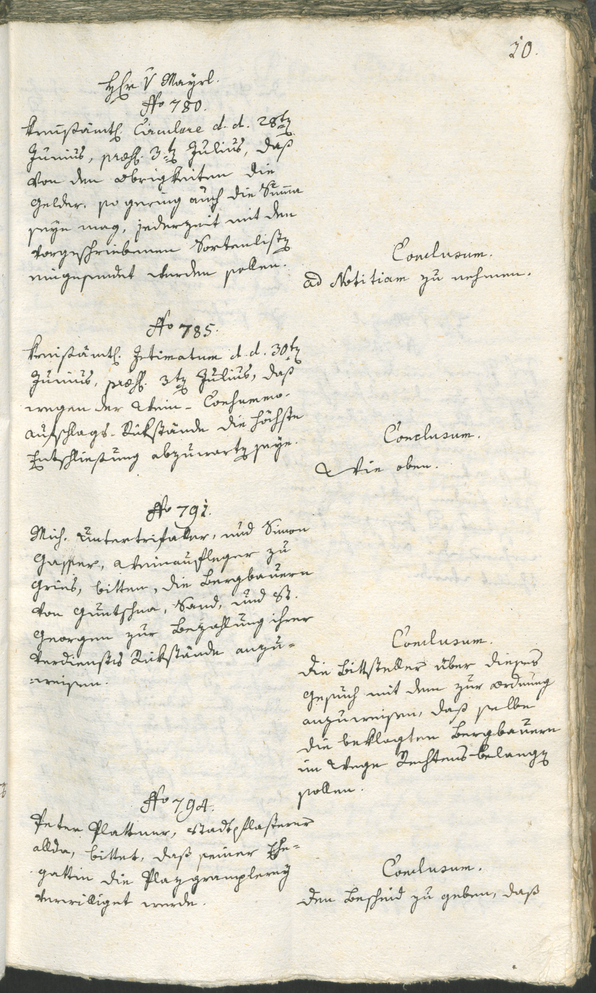 20.
Hhr v Mayrl.
No 780.
Kreisämtl. Circulare d. d. 28tn
Junius, præs. 3tn Julius, daß
von den Obrigkeiten die
Gelder, so gering auch die Summa
seyn mag, jederzeit mit den
vorgeschriebenen Sortenlistn
eingesendet werden sollen.
Conclusum.
ad Notitiam zu nehmen.
No 785.
Kreisämtl. Intimatum d. d. 30tn
Junius, præs. 3tn Julius, daß
wegen der Wein-Consummo-
Aufschlags-Rükstände die höchste
Entschliessung abzuwartn seye.
Conclusum.
Wie oben.
No 791.
Mich. Untertrifaller, und Simon
Gasser, Weinaufleger zu
Gries, bitten, die Bergbauern
von Guntschna, Sand, und St.
Georgen zur Bezahlung ihrer
Verdienstes Rükstände anzu-
weisen.
Conclusum.
die Bittsteller über dieses
Gesuch mit dem zur Ordnung
anzuweisen, daß selbe
die beklagten Bergbauern
im Wege Rechtens belangn
sollen.
No 794.
Peter Plattner, Stadtpflasterer
allda, bittet, daß seiner Ehe-
gattin die Plazgramplerey
verwilliget werde.
Conclusum.
den Bescheid zu geben, daß